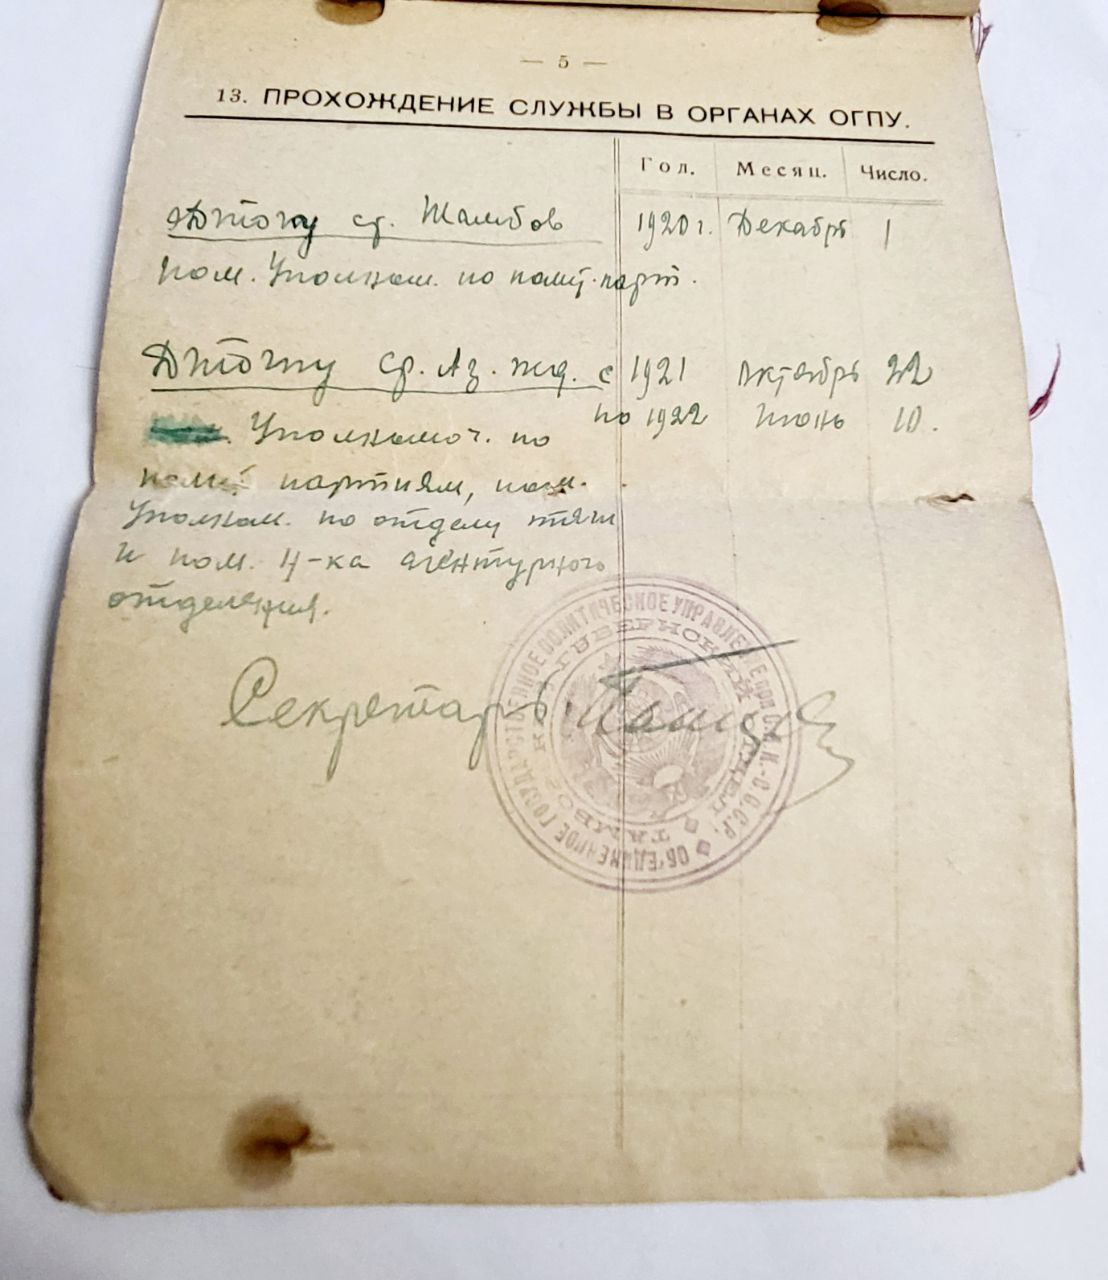 — 5 —
13. ПРОХОЖДЕНИЕ СЛУЖБЫ В ОРГАНАХ ОГПУ.
Год. Месяц. Число.
ДТЮЧК ст. Тамбов 1920 г. Декабрь 1
пом. Уполном. по полит. парт.
ДТЮЧК ст. Аз. жд. с 1921 октябрь 22
по 1922 июнь 10.
Уполномоч. по
полит партиям, пом.
Уполном. по отделу тяги
и пом. Н-ка агентурного
отделения.
Секретарь
ОБ'ЕДИНЕННОЕ ГОСУДАРСТВЕННОЕ ПОЛИТИЧЕСКОЕ УПРАВЛЕНИЕ ПРИ С.Н.К.-С.С.С.Р.
ТАМБОВСКИЙ ГУБЕРНСКИЙ ОТДЕЛ